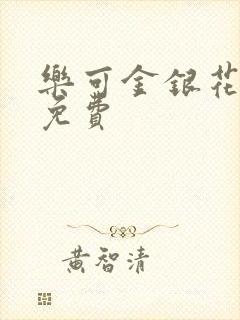 樂可金銀花
免費
黃智清